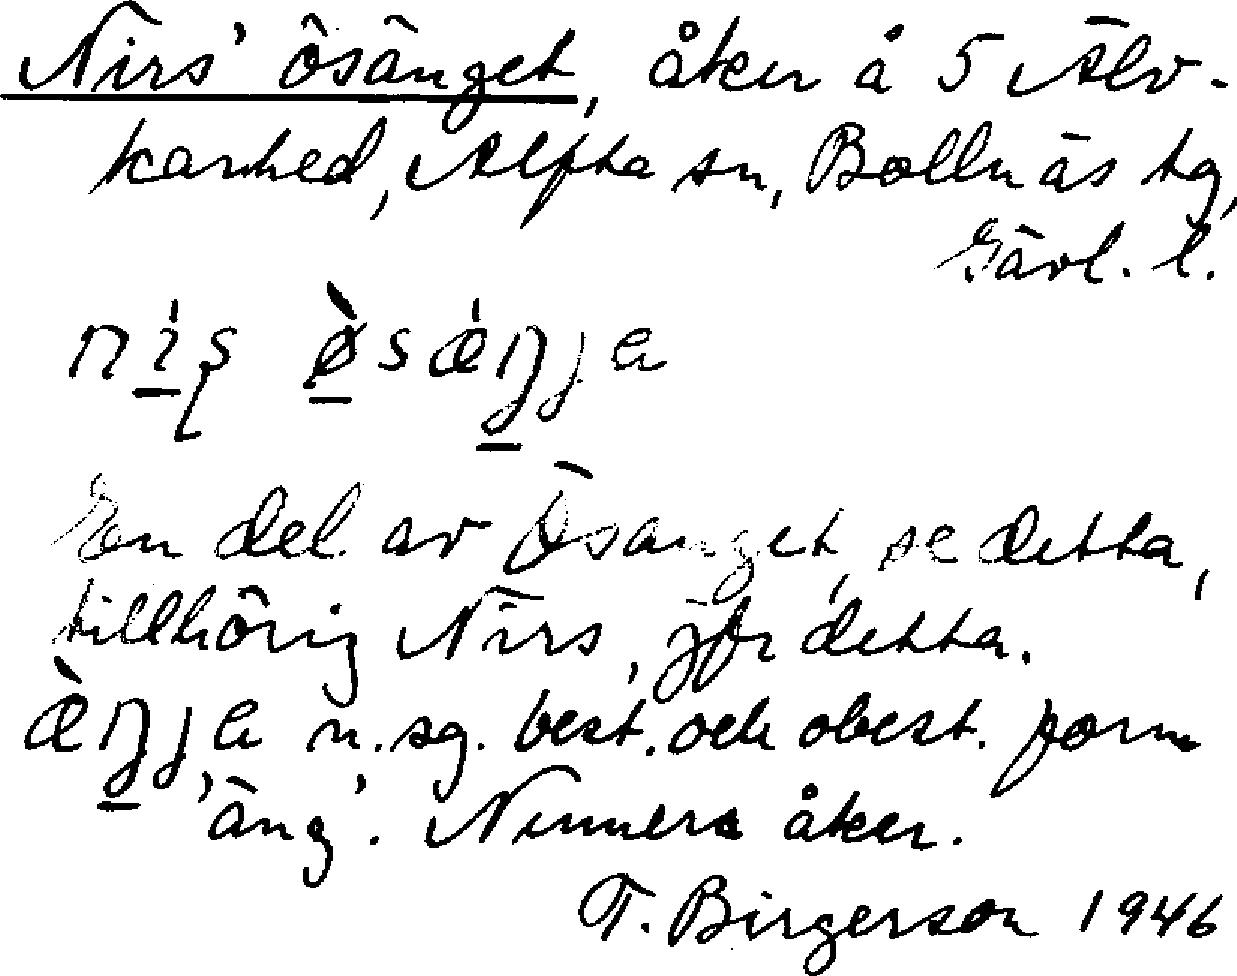 Nirs' ösänget, åker å 5 Älv-
karhed, Alfta sn, Bollnäs tg,
Gävl. l.
En del av Ösänget, se detta,
tillhörig Nirs, jfr detta.
n. sg. best. och obest. form
'äng'. Numera åker.
T. Birgerson 1946